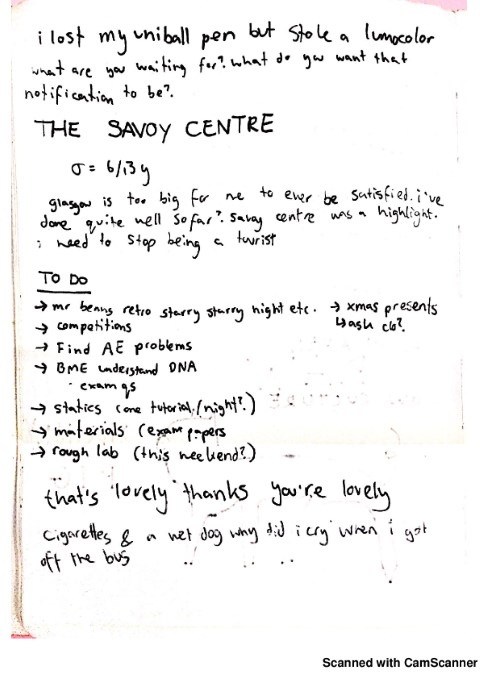 i lost my uniball pen but stole a lumocolor
what are you waiting for? what do you want that
notification to be?
THE SAVOY CENTRE
σ = 6/13 y
glasgow is too big for me to ever be satisfied. i've
done quite well so far? savoy centre was a highlight.
i need to stop being a tourist
TO DO
→ mr benns retro starry starry night etc. → xmas presents
→ competitions ↳ ask
→ Find AE problems
→ BME understand DNA
· exam qs
→ statics (one tutorial/night?)
→ materials (exam papers
→ rough lab (this weekend?)
that's 'lovely' thanks you're lovely
cigarettes & a wet dog why did i cry when i got
off the bus
Scanned with CamScanner